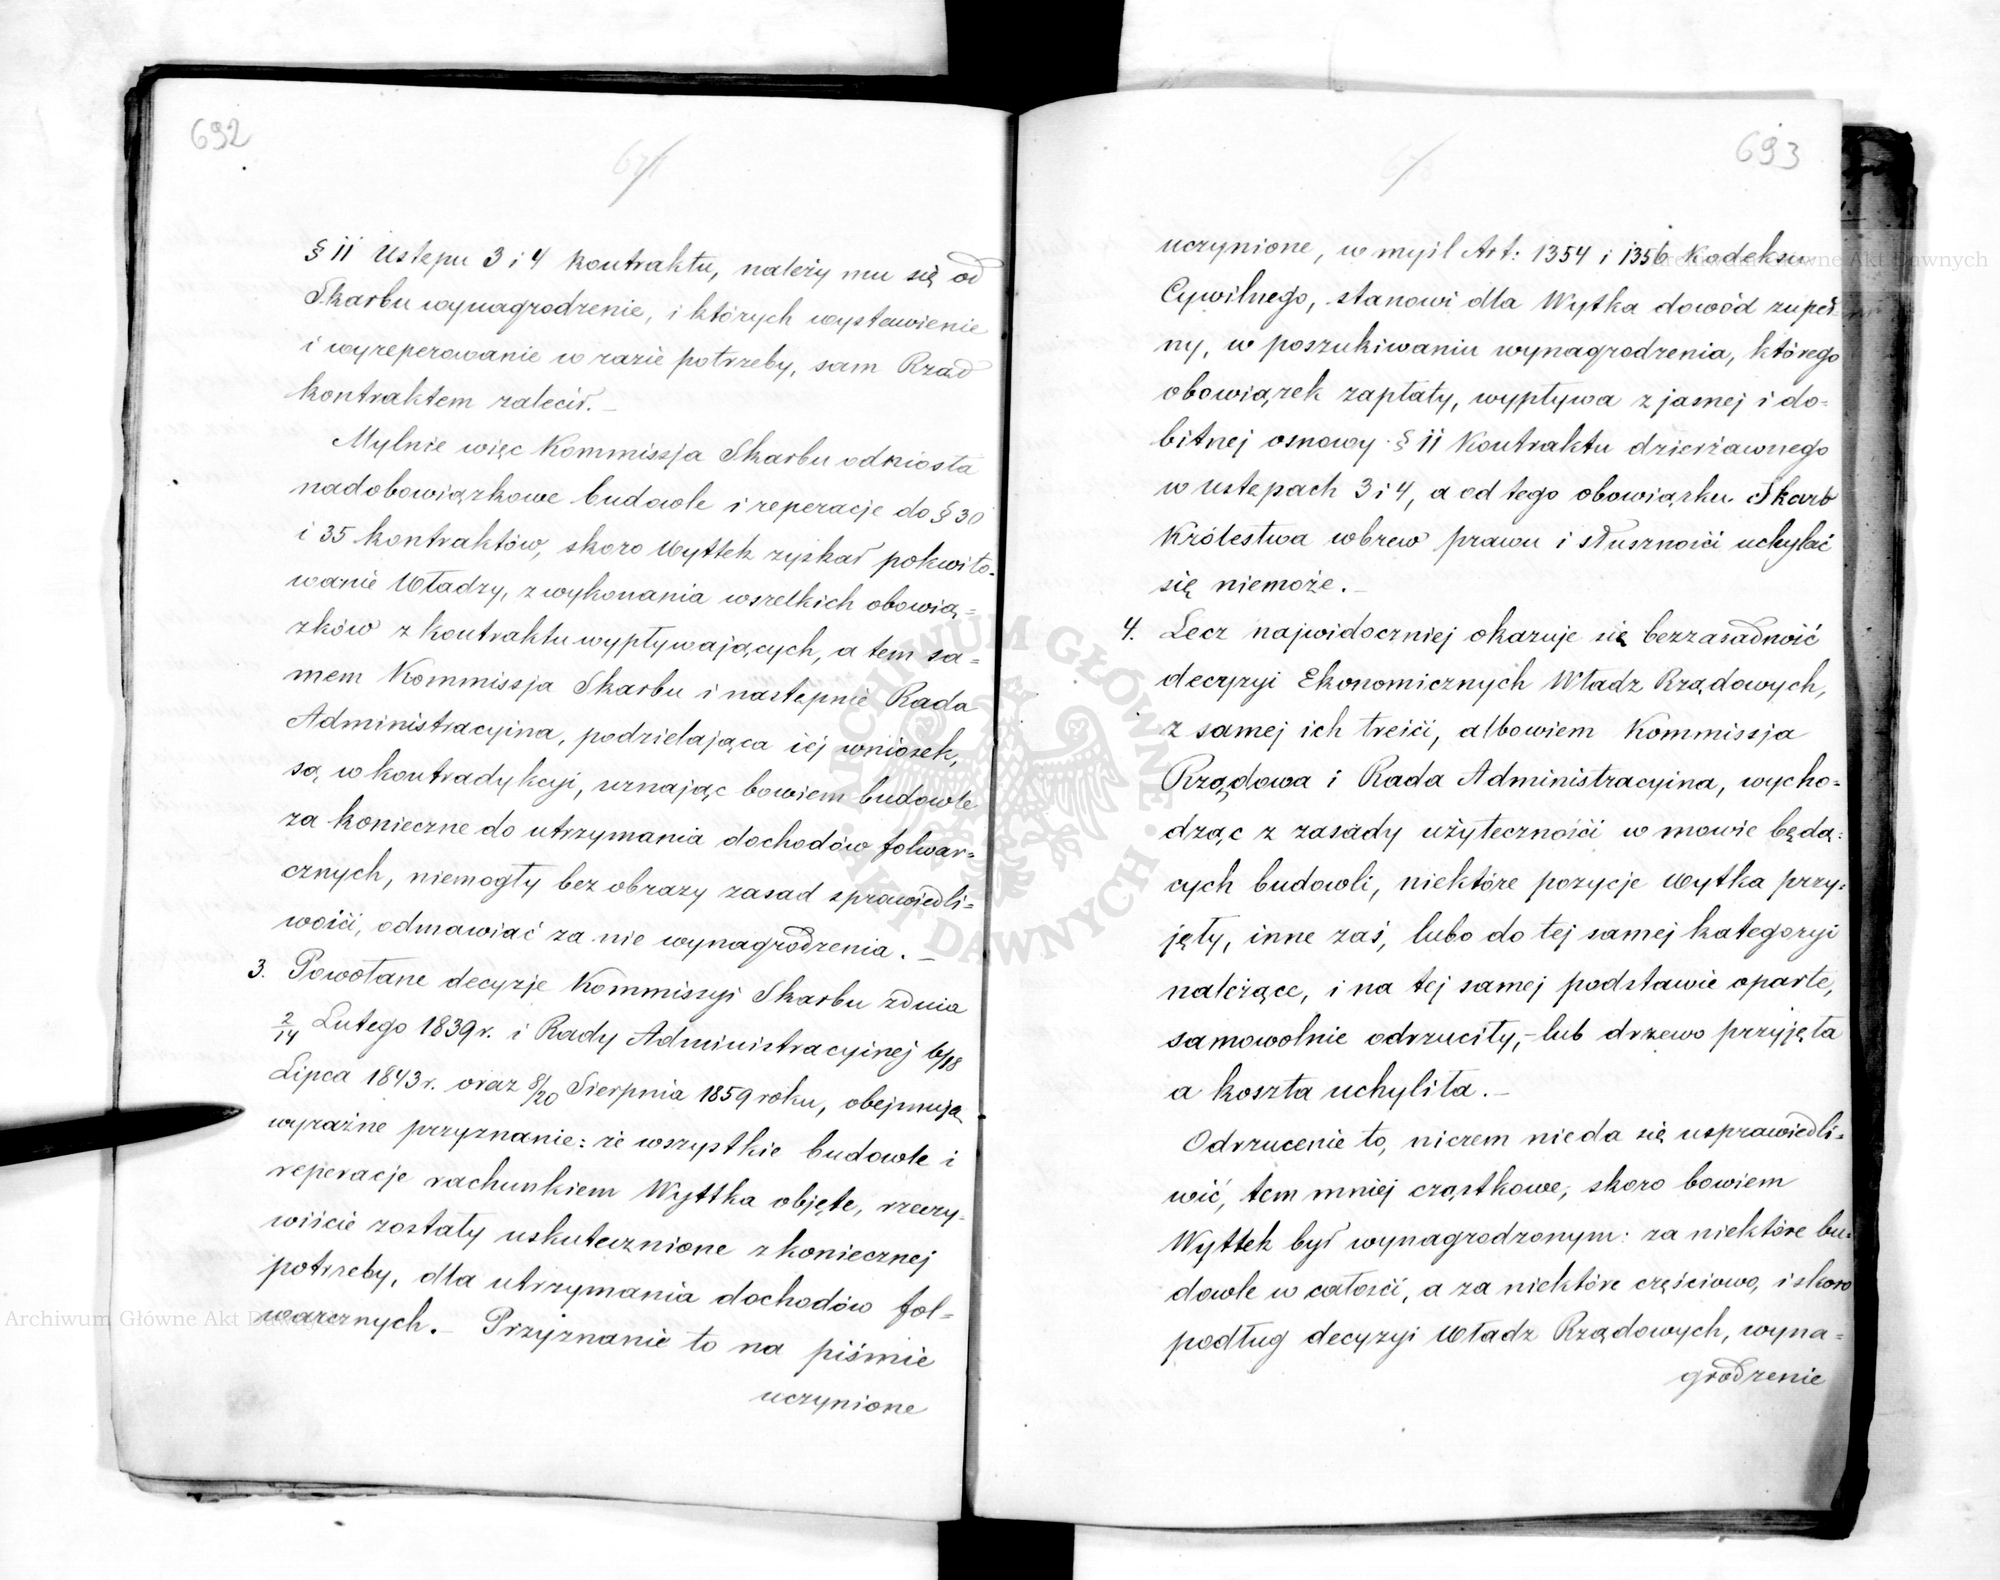 692
§ 11 Ustępu 3 i 4 kontraktu, należy mu się od
Skarbu wynagrodzenie, i których wystawienie
i wyreperowanie w razie potrzeby, sam Rząd
kontraktem zalecił. –
Mylnie więc Kommissja Skarbu odniosła
nadobowiązkowe budowle i reperacje do § 30
i 35 kontraktów, skoro Wyttek zyskał pokwito-
wanie Władzy, z wykonania wszelkich obowią=
zków z kontraktu wypływających, a tem sa=
mem Kommissja Skarbu i następnie Rada
Administracyjna, podzielająca jej wniosek,
są w kontradykcyi, uznając bowiem budowle
za konieczne do utrzymania dochodów folwar=
cznych, niemogły bez obrazy zasad sprawiedli=
wości, odmawiać za nie wynagrodzenia. –
3. Powołane decyzje Kommissyi Skarbu z dnia
2/14 Lutego 1839 r. i Rady Administracyjnej 6/18
Lipca 1843 r. oraz 8/20 Sierpnia 1859 roku, obejmują
wyraźne przyznanie: że wszystkie budowle i
reperacje rachunkiem Wyttka objęte, rzeczy-
wiście zostały uskutecznione z koniecznej
potrzeby, dla utrzymania dochodów fol=
warcznych. – Przyznanie to na piśmie
uczynione
693
uczynione, w myśl Art: 1354 i 1356 Kodeksu
Cywilnego, stanowi dla Wytka dowód zupeł=
ny, w poszukiwaniu wynagrodzenia, którego
obowiązek zapłaty, wypływa z jasnej i do=
bitnej osnowy § 11 Kontraktu dzierżawnego
w ustępach 3 i 4, a od tego obowiązku Skarb
Królestwa wbrew prawu i słuszności uchylać
się niemoże. –
4. Lecz najwidoczniej okazuje się bezzasadność
decyzyi Ekonomicznych Władz Rządowych,
z samej ich treści, albowiem Kommissja
Rządowa i Rada Administracyjna, wycho=
dząc z zasady użyteczności w mowie będą=
cych budowli, niektóre pozycje Wytka przy=
jęły, inne zaś, lubo do tej samej kategoryi
należące, i na tej samej podstawie oparte,
samowolnie odrzuciły, – lub drzewo przyjęła
a koszta uchyliła. –
Odrzucenie to, niczem nieda się usprawiedli=
wić, tem mniej cząstkowe, skoro bowiem
Wyttek był wynagrodzonym: za niektóre bu=
dowle w całości, a za niektóre częściowo, i skoro
podług decyzyi Władz Rządowych, wyna=
grodzenie
ARCHIWUM GŁÓWNE AKT DAWNYCH
Archiwum Główne Akt Dawnych
Archiwum Główne Akt Dawnych